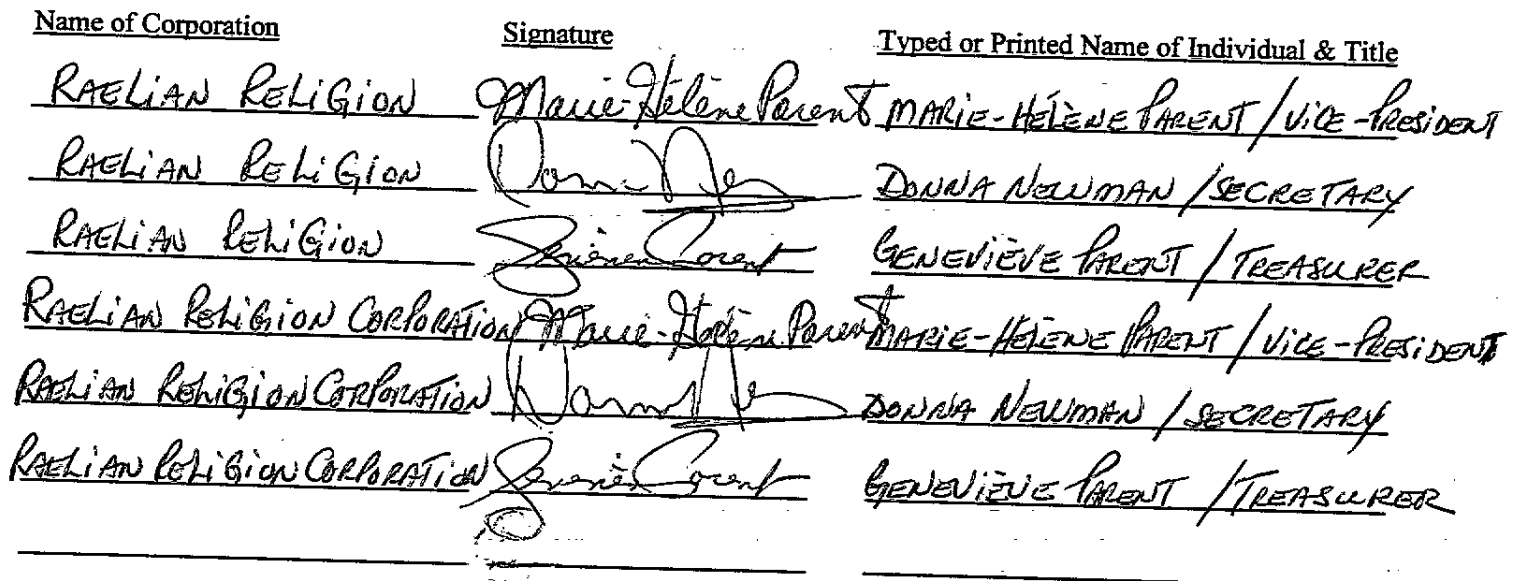 Name of Corporation Signature Typed or Printed Name of Individual & Title
RAELIAN RELIGION Marie-Hélène Parent MARIE-HÉLÈNE PARENT / VICE-PRESIDENT
RAELIAN RELIGION DONNA NEWMAN / SECRETARY
RAELIAN RELIGION GENEVIÈVE PARENT / TREASURER
RAELIAN RELIGION CORPORATION Marie-Hélène Parent MARIE-HÉLÈNE PARENT / VICE-PRESIDENT
RAELIAN RELIGION CORPORATION DONNA NEWMAN / SECRETARY
RAELIAN RELIGION CORPORATION GENEVIÈVE PARENT / TREASURER